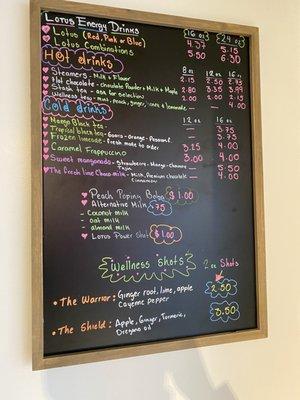 Lotus Energy Drinks
16 oz 24 oz
Lotus (Red, Pink or Blue) 4.75 5.15
Lotus Combinations 5.50 6.30
Hot drinks
8 oz 12 oz 16 oz
Steamers - Milk & Flavor 2.15 2.50 2.75
Hot chocolate - chocolate Powder & Milk & Maple 2.80 3.35 3.99
Stash tea - ask for selection 2.00 2.15
Wellness teas - mint, peach, ginger, & lemonade 4.00
Cold drinks
12 oz 16 oz
Mango Black tea - 3.75
Tropical black tea - Guava - orange - Passionf. 3.75
Frozen limeade - fresh made to order 4.00
Caramel Frappuccino 3.25 4.00
Sweet mangonada - Strawberry - Mango - Chamoy 3.00 5.50
Tajin
The fresh lime Choco-milk - Milk, Premium chocolate 4.00
Cinnamon
Peach Poping Boba $1.00
Alternative Milk .75
- Coconut milk
- oat milk
- almond milk
Lotus Power Shot $1.00
Wellness Shots
2 oz Shots
• The Warrior: Ginger root, lime, apple 2.50
Cayenne pepper
• The Shield: Apple, Ginger, Turmeric, 3.50
Oregano oil